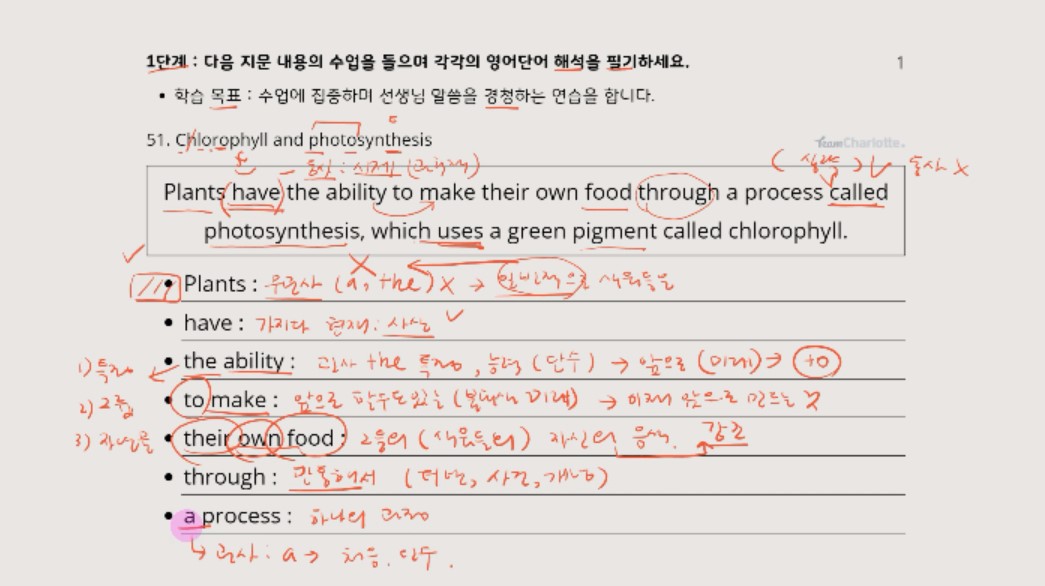 1단계 : 다음 지문 내용의 수업을 들으며 각각의 영어단어 해석을 필기하세요.
1
• 학습 목표 : 수업에 집중하며 선생님 말씀을 경청하는 연습을 합니다.
51. Chlorophyll and photosynthesis
TeamCharlotte.
동사 : 시제
(생략) 동사 X
Plants have the ability to make their own food through a process called
photosynthesis, which uses a green pigment called chlorophyll.
• Plants : 무관사 (a, the) X → 일반적으로 식물들은
• have : 가지다 현재 : 사실
1) 특정
• the ability : 관사 the 특정, 능력 (단수) → 앞으로 (미래) → to
2) 공통
• to make : 앞으로 할 수도 있는 (미래) → 미래 앞으로 만드는 것
3)
• their own food : 그들의 (식물들의) 자신의 음식. 강조
• through : 관통해서 (터널, 사건, 개념)
• a process : 하나의 과정
↳ 관사 : a → 처음, 단수.